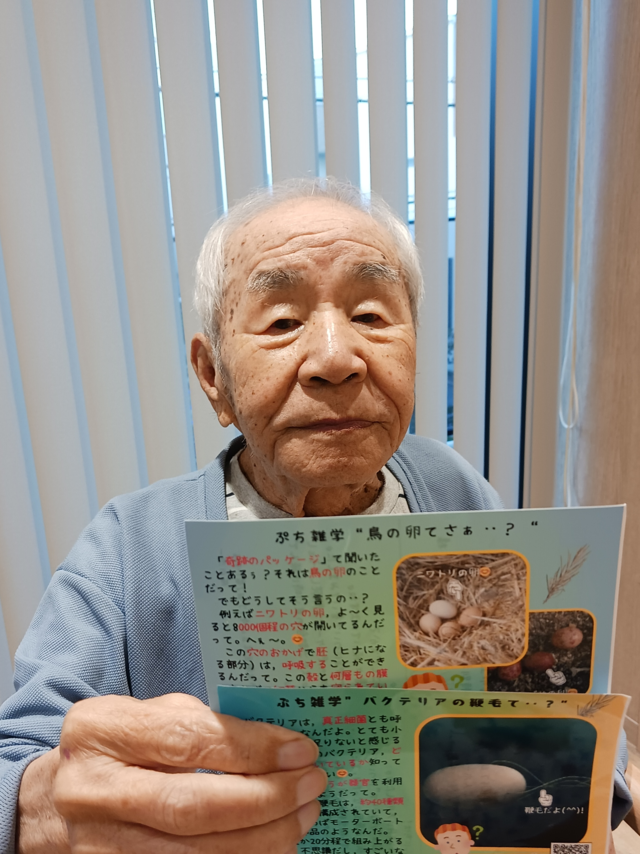 ぷち雑学 "鳥の卵てさぁ‥? "
「奇跡のパッケージ」て聞いた
ことあるぅ?それは鳥の卵のこと
だって!
でもどうしてそう言うの‥?
例えばニワトリの卵,よ〜く見
ると8000個程の穴が開いてるんだ
って。へぇ〜。
この穴のおかげで胚(ヒナにな
る部分)は,呼吸することができ
るんだって。この殻と何層もの膜
ニワトリの卵
ぷち雑学" バクテリアの鞭毛て‥?"
バクテリアは,真正細菌とも呼
なんだよ。とても小
足りないと感じる
バクテリア,ど
ているか知って
い
を利用
ようだって。
鞭毛は,約40種類
構成されていて,
ばモーターボート
品のようなんだ。
か20分程で組み上がる
不思議だし,すごいな
鞭毛だよ(^^)!